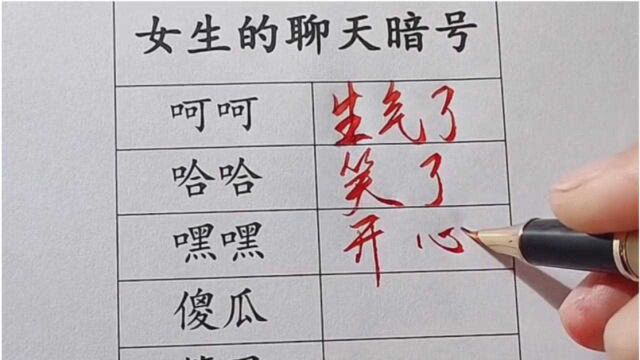 女生的聊天暗号
呵呵 生气了
哈哈 笑了
嘿嘿 开心
傻瓜